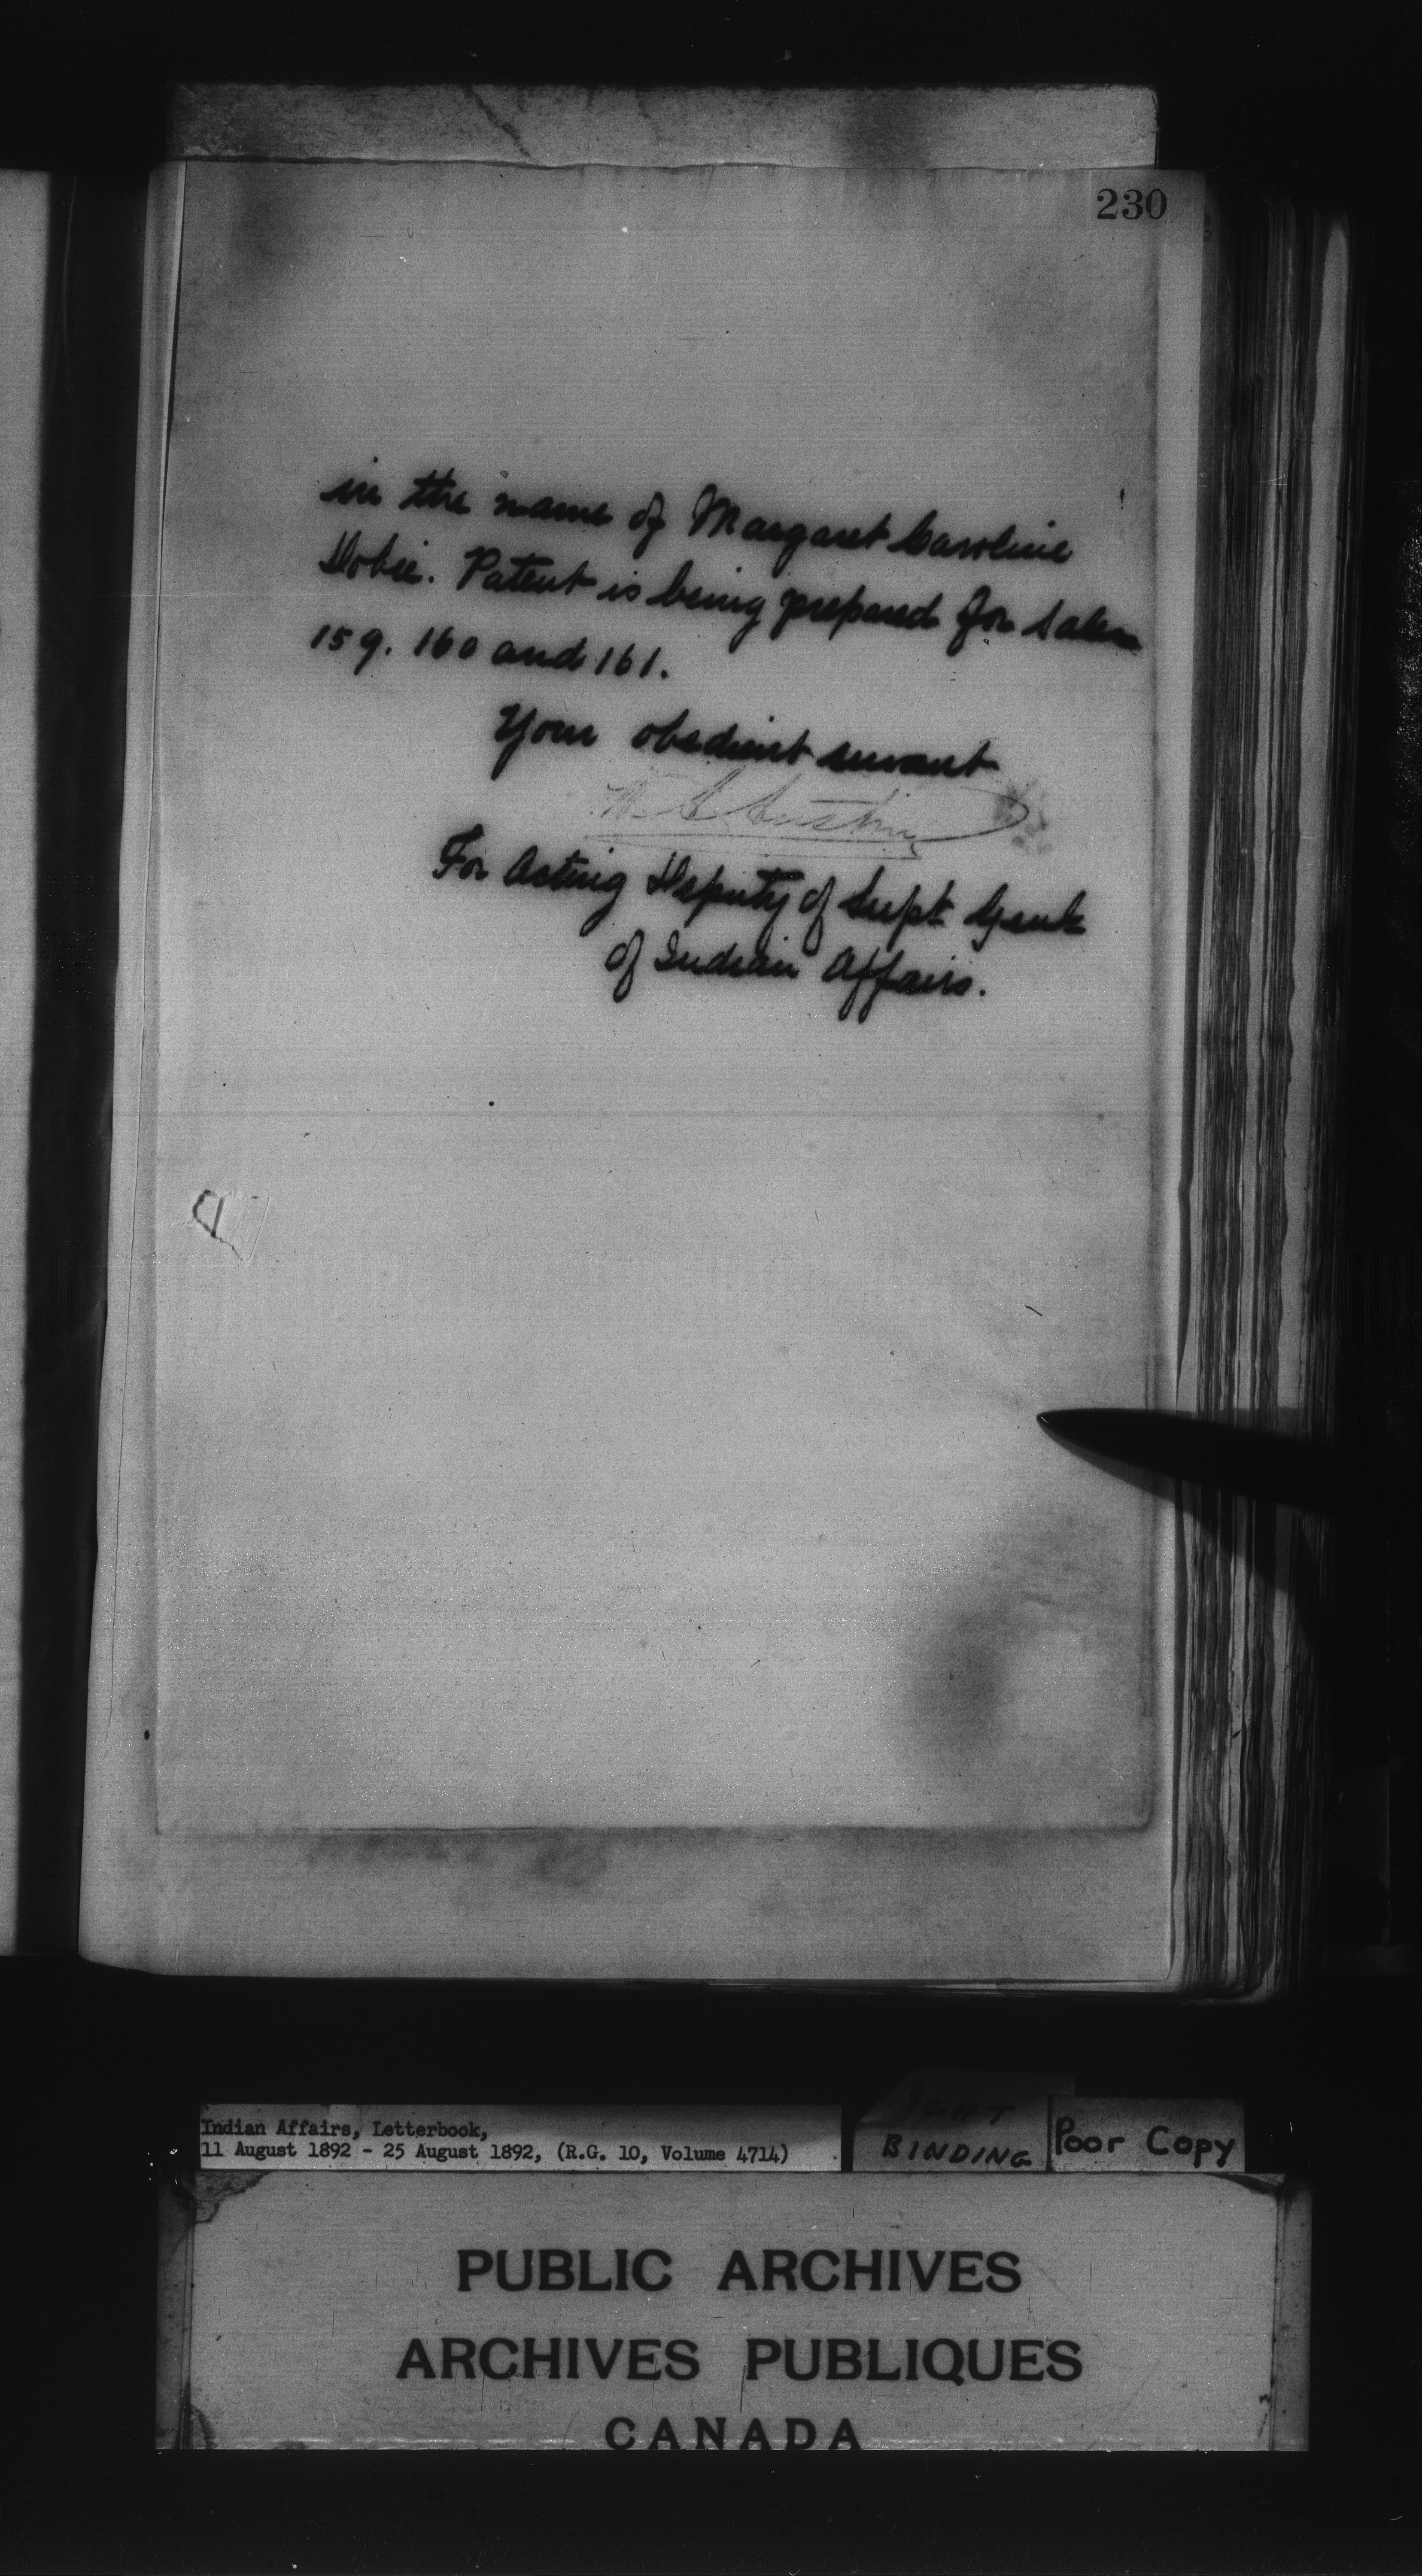 230
in the name of Margaret Caroline
Dobie. Patent is being prepared for sales
159. 160 and 161.
Your obedient servant
W. A. Austin
For Acting Deputy of Supt Genl
of Indian Affairs.
Indian Affairs, Letterbook,
11 August 1892 - 25 August 1892, (R.G. 10, Volume 4714)
BINDING
Poor Copy
PUBLIC ARCHIVES
ARCHIVES PUBLIQUES
CANADA